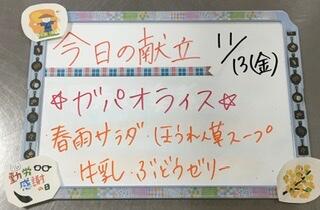 今日の献立 11/13(金)
☆ガパオライス☆
・春雨サラダ ・ほうれん草スープ
・牛乳 ・ぶどうゼリー
勤労
感謝
の日